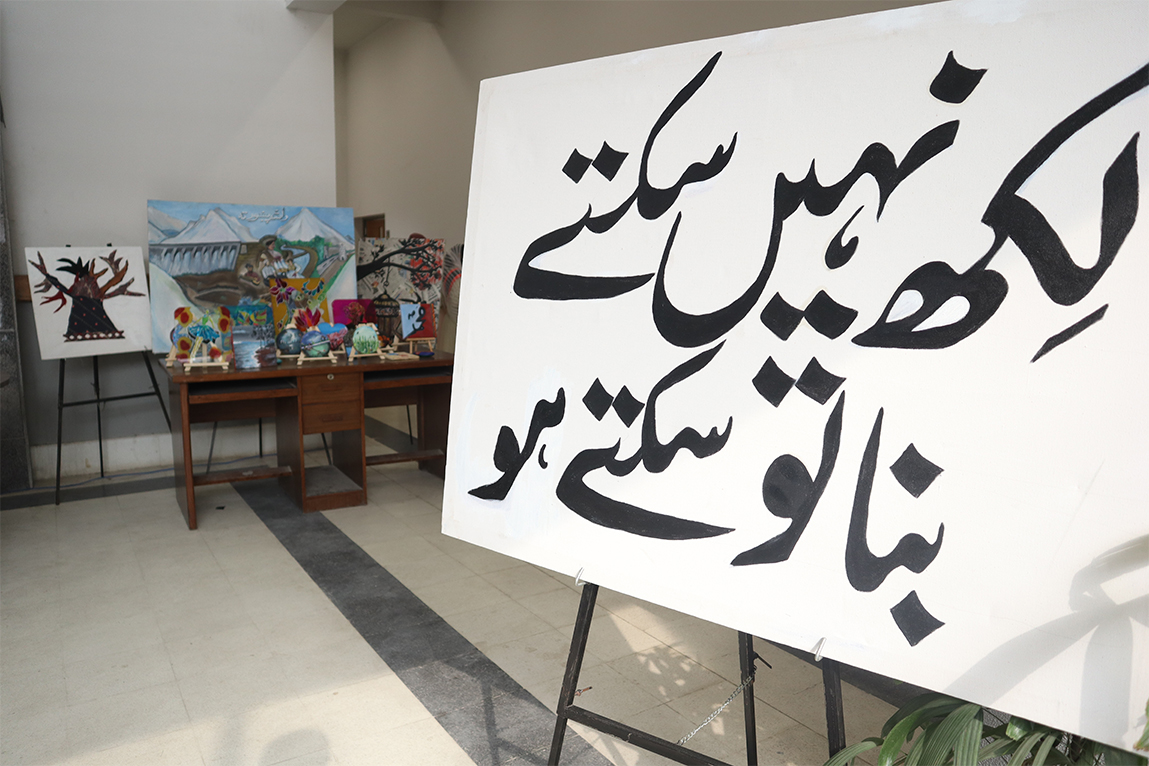 لکھ نہیں سکتے
بنا تو سکتے ہو